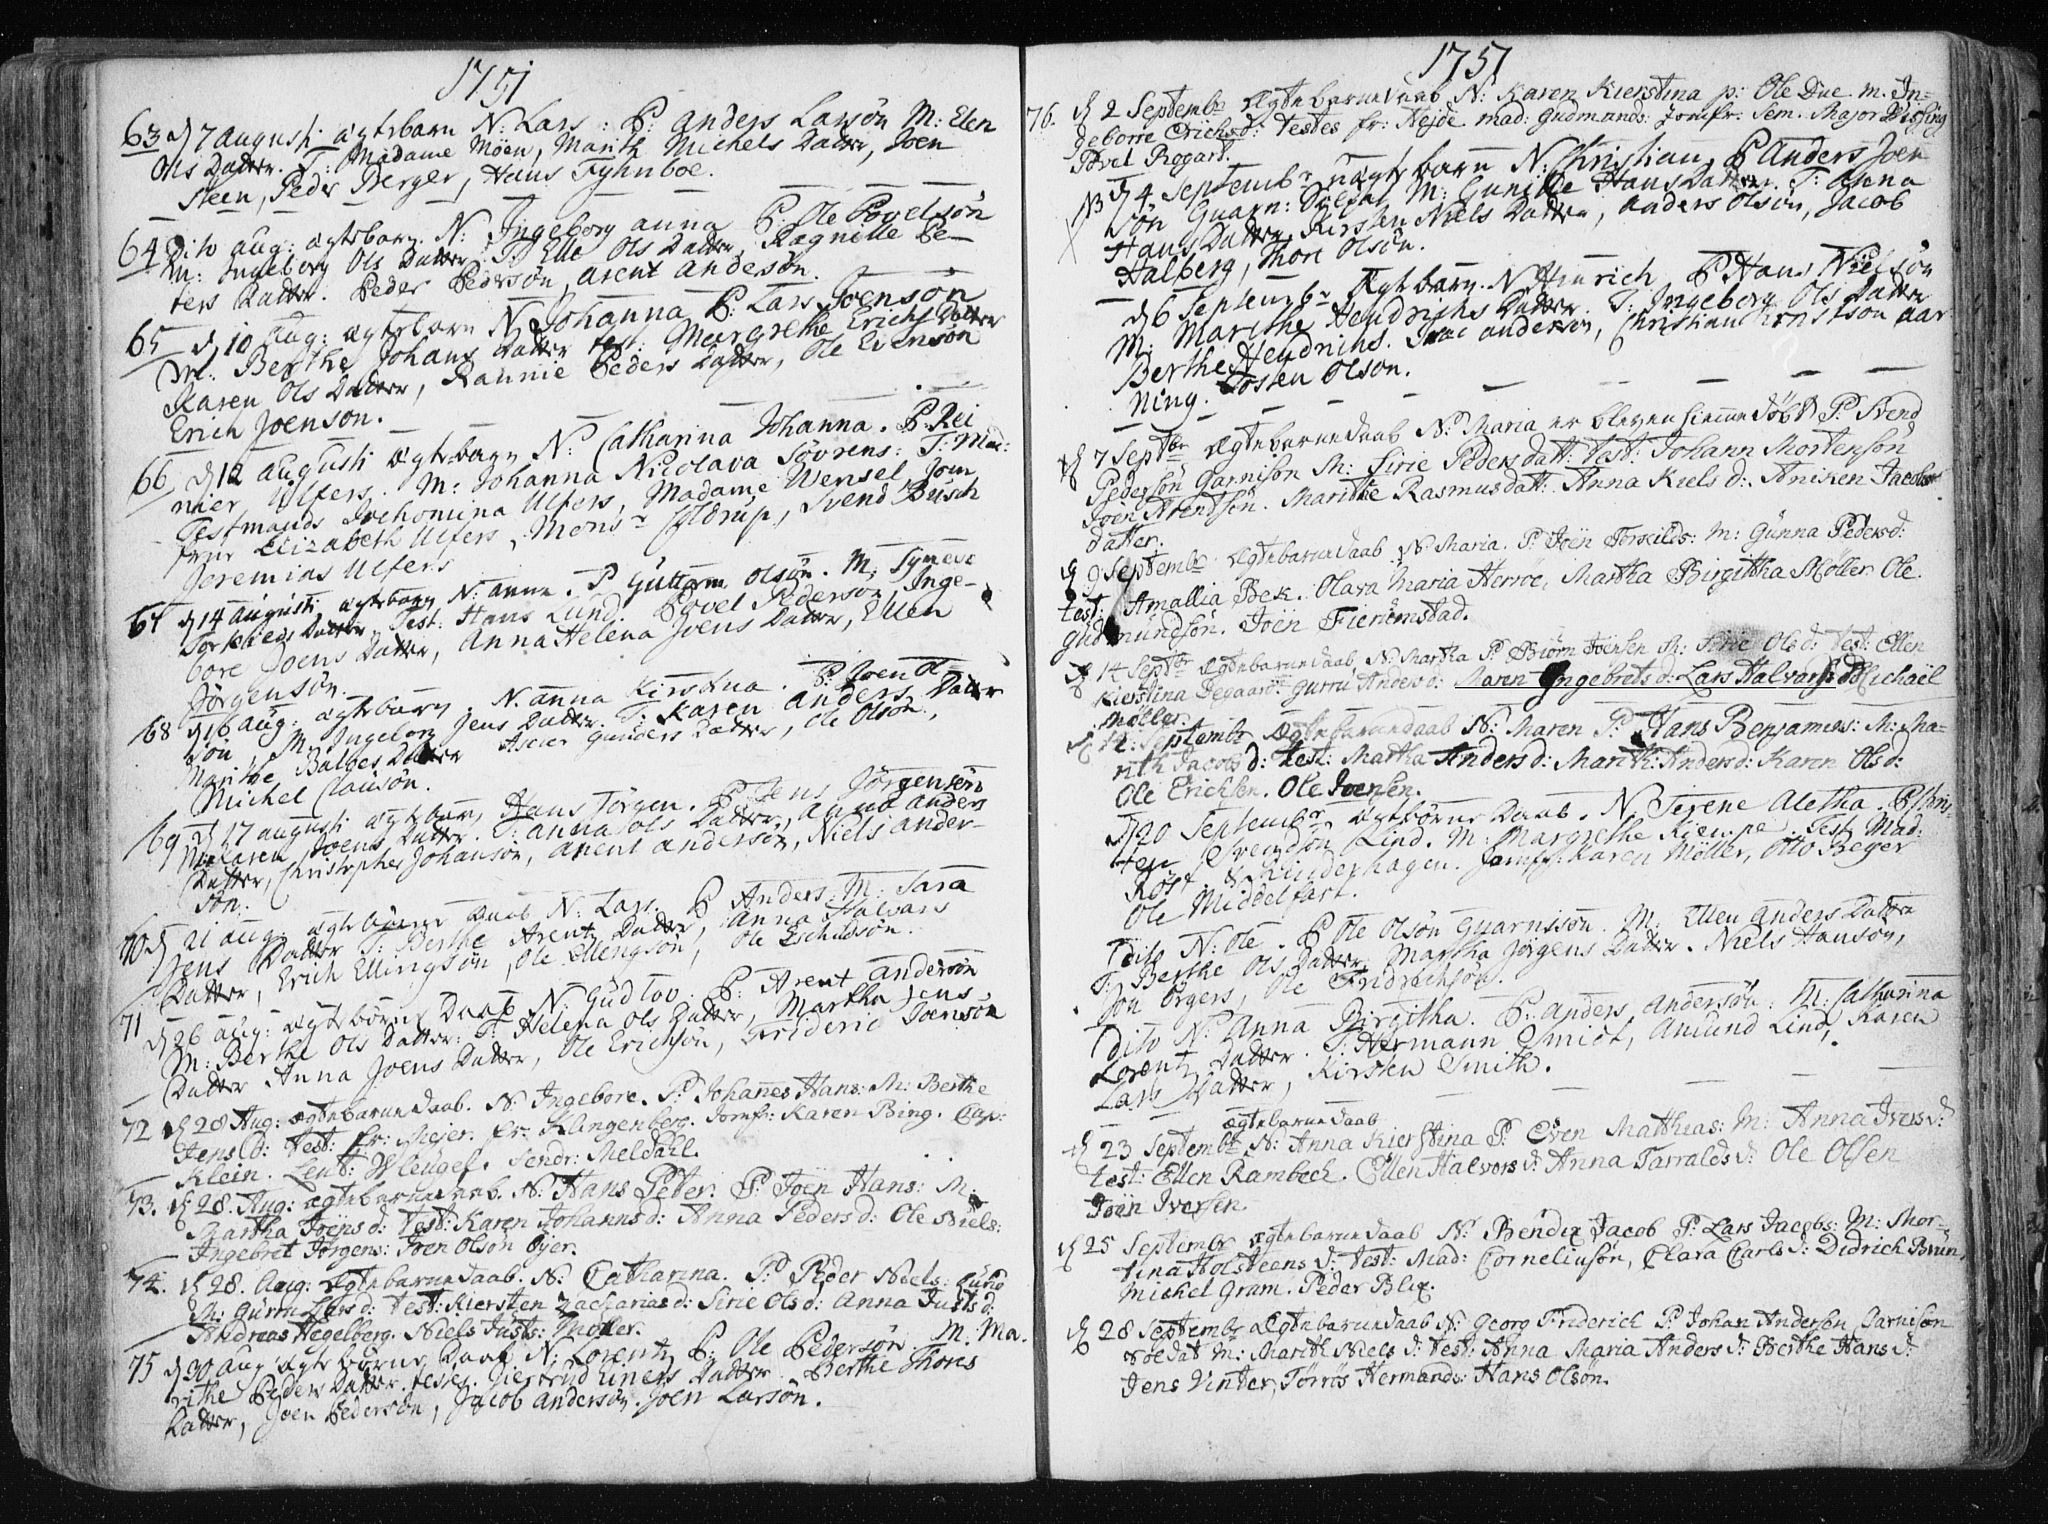 1751
63 d 7 augusti ægtebarn N: Lars: P: anders Larsön M: Elen
Ols Datter. T: Madame Möen, Marith Michels Datter, Joen
Steen, Peder Berger, Hans Fyhnboe.
64 Dito aug: ægtebarn N: Ingeborg anna P: Ole Povelsön
M: Ingeborg Ols Datter. T: Elle Ols Datter, Ragnille Pe-
ters Datter. Peder Pedersön, arent anderson.
65 d 10 aug: ægtebarn N Johanna P: Lars Joenson
M: Berthe Johans Datter test: Margrethe Erichs Datter
Karen Ols Datter, Rannie Peders Datter, Ole Evenson
Erich Joenson.
66 d 12 augusti ægtebarn N: Catharina Johanna. P: Rei
nier Ulfers. M: Johanna Nicolava Sövrens: T: Mad:
Testmands Jochomina Ulfers, Madame Wensel Jom
frue Elizabeth Ulfers, Mons:r Coldrup, Svend Busch
Jeremias Ulfers
67 d 14 augusti ægtebarn N: anne. P Guttorm olsön. M: Synneve
Torkields Datter. Test: Hans Lund. Povel Pederson Inge-
bore Joens Datter, Anna Helena Joens Datter, Ellen
Jörgensön.
68 d 16 aug: ægtebarn N. anna Kirstina. P: Joen O-
son, M: Ingeborg Jens Datter. T: Karen anders Datter
Marithe Balbes Datter Asur Gunders Datter, Ole Olson,
Michel Clausön.
69 d 17 augusti ægtebarn Hans Jörgen. P: Jens Jörgensens
M: Karen Joens Datter. T: anna Ols Datter, anna anders
Datter, Christopher Johansön, arent anderson, Niels ander-
son.
70 d 21 aug: ægtebörne Daab N: Lars. P Anders: M: Sara
Jens Datter T: Berthe Arentz Datter, Anna Halvars
Datter, Erich Ellingsön, Ole Ellengsön, Ole Eschildsön.
71 d 26 aug: ægtebörne Daab N: Gudlov. P: Arent anderson
M: Berthe Ols Datter: T: Helena Ols Datter, Martha Jens
Datter Anna Joens Datter, Ole Erichsön, Frideric Joensön
72 d 28 Aug: ægtebarne daab. N: Ingebore. P: Johanes Hans: M: Berthe
Jens d: test: fr: Meÿer. fr: Klingenberg. Jomfr: Karen Bing. Cap:
Klein. Leut: Wleugel. Sendr: Meldahl.
73. d 28. Aug: ægtebarne daab. N: Hans Peter. P: Joen Hans: M:
Martha Joens d: test: Karen Johanns d: Anna Peders d: Ole Niels:
Ingebret Jörgens: Joen Olsön Öjer.
74. d 28. Aug: ægtebarne daab. N: Catharina. P: Peder Niels: Lund
M: Gurru Lars d: test: Kiersten Zacharias d: Sirie Ols d: Anna Justs d:
Andreas Hegelberg. Niels Justs: Möller.
75 d 30 aug ægtebörne Daab N: Lorentz P: Ole Pedersön M: Ma-
rithe Peders Datter. testes Giertrud Einers Datter Berthe Thores
Datter, Joen Pederson, Jacob anderson. Joen Larsön.
1751
76. d 2 Septembr ægtebarne daab N: Karen Kierstina p: Ole Due. m. In-
geborre Erichs d: testes fr: Hejde mad: Gudmands: Jomfr: Sem. Major Bissing
Povel Rogart.
NB d 4 Septembr uægtebarn N: Christian P Anders Joen
sön Guarn: Soldat M: Gunille Hans Datter. T: Anna
Hans Datter, Kirsten Niels Datter, anders Olsön, Jacob
Halberg, Thore Olsön.
d 6 Septembr Ægtebarn N: Hinrich P: Hans Nielsön
M: Marithe Hendrichs Datter. T: Ingeborg Ols Datter
Berthe Hendrichs. Isac anderson, Christian Ernstsön aar
ning. Tosten Olson.
d 7 Septbr ægtebarne daab N: Maria er bleven hiemmedöbt P: Svend
Pedersön Garnison M: Sirie Peders datt: test: Johann Mortensön
Joen Arendsön. Marithe Rasmus datt: Anna Niels d: Aniken Jacobs
datter.
d 9 Septembr ægtebarne daab N: Maria. P: Joen Torkilds: M: Gunna Peders d:
test: Amallia Bek. Olava Maria Herröe, Martha Birgitha Möller Ole.
Gudmundsön. Joen Fieremstad.
d 14 Septbr ægtebarne daab N: Martha P: Biörn Joensen M: Sirie Ols d: test: Ellen
Kierstina Degaard: Gurru Anders d: Maren Ingebrets d: Lars Halvars: Michaël
Möller.
d 12: Septembr ægtebarne daab N: Maren P: Hans Benjamins: M: Ma-
rith Jacobs d: test: Martha Anders d: Marith Anders d: Karen Ols d:
Ole Erichsen. Ole Joensen.
d 20 Septembr ægtebörne Daab. N Serene Aletha. P: Chris-
ten Svendsön Lind. M: Margrethe Kiempe Test: Mad:
Röst & Kindephagen. Jomfr: Karen Möller, Otto Beyer
Ole Middelfart.
Dito N: Ole. P Ole Olsön Guarnison. M: Ellen Anders Datter
T: Berthe Ols Datter, Martha Jörgens Datter. Niels Hansön,
Jon Örgers, Ole Fridrichsön.
Dito N: Anna Birgitha. P: anders andersön. M: Catharina
Lorentz Datter. T: Hermann Smidt, Amund Lind, Karen
Lars Datter, Kirsten Smith.
ægtebarne daab
d 23 Septembr N: Anna Kierstina P: Even Matthias: M: Anna Ivers d:
test: Ellen Rambech. Ellen Halvors d: Anna Tarralds d: Ole Olsen
Joen Iversen.
d 25 Septembr ægtebarne daab N: Bendix Jacob P: Lars Jacobs: M: Mor-
tina Holsteens d: test: Mad: Corneliusön, Clara Carls d: Didrich Brun
Michel Gram. Peder Blix.
d 28 Septembr ægtebarne daab N: Georg Friderich P: Johan Anderson Garnison
Soldat M: Marith Niels d: test: Anna Maria Anders d: Berthe Hans d:
Jens Vinter, Törrös Hermands: Hans Olsön.